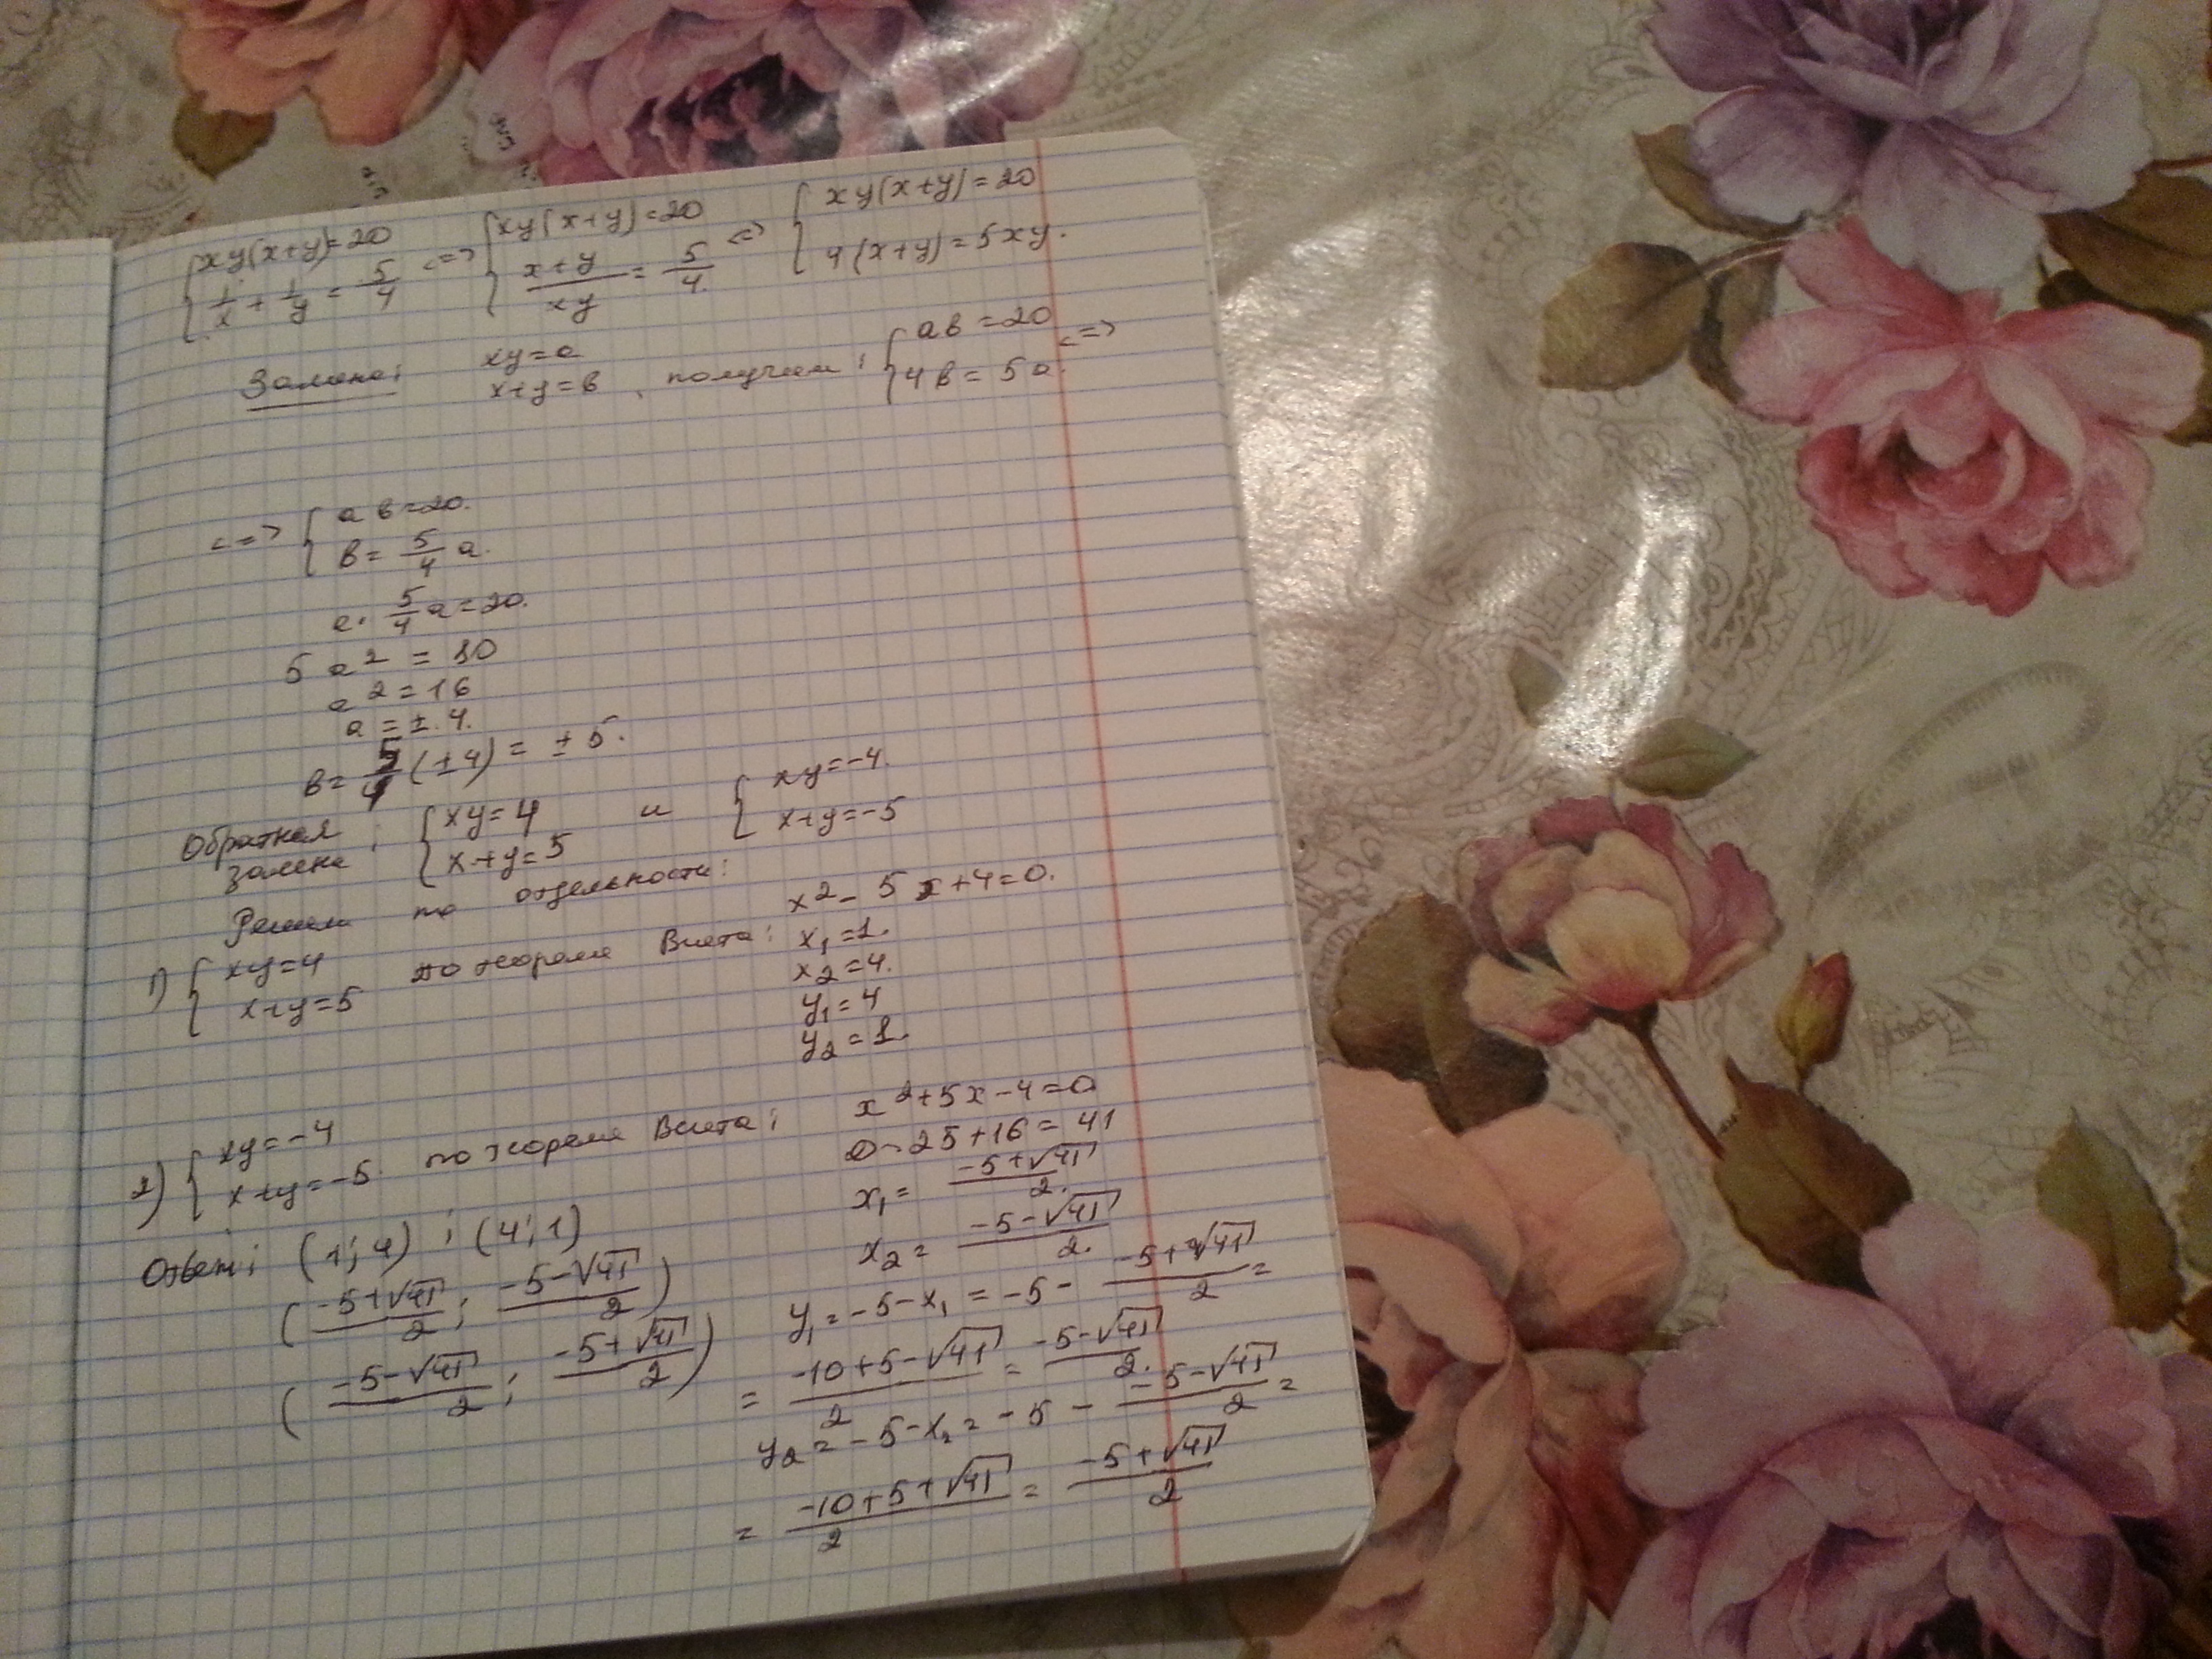 { xy(x+y)=20 <=> { xy(x+y)=20 <=> { xy(x+y)=20
1/x + 1/y = 5/4   (x+y)/xy = 5/4   4(x+y)=5xy.
Замена: xy=a
x+y=в, получим: { ав=20 <=>
4в=5а.
<=> { ав=20.
в= 5/4 а.
а· 5/4 а=20.
5а²=80
а²=16
а=±4.
в= 5/4 (±4) = ±5.
Обратная замена: { xy=4 и { xy=-4.
x+y=5   x+y=-5
Решим по отдельности:
1) { xy=4 по теореме Виета: x²-5x+4=0.
x+y=5
x₁=1.
x₂=4.
y₁=4
y₂=1.
2) { xy=-4 по теореме Виета: x²+5x-4=0
x+y=-5.
D=25+16=41
x₁= (-5+√41)/2.
x₂= (-5-√41)/2.
y₁=-5-x₁=-5- (-5+√41)/2 =
= (-10+5-√41)/2 = (-5-√41)/2.
y₂=-5-x₂=-5- (-5-√41)/2 =
= (-10+5+√41)/2 = (-5+√41)/2
Ответ: (1;4); (4;1)
((-5+√41)/2; (-5-√41)/2)
((-5-√41)/2; (-5+√41)/2)